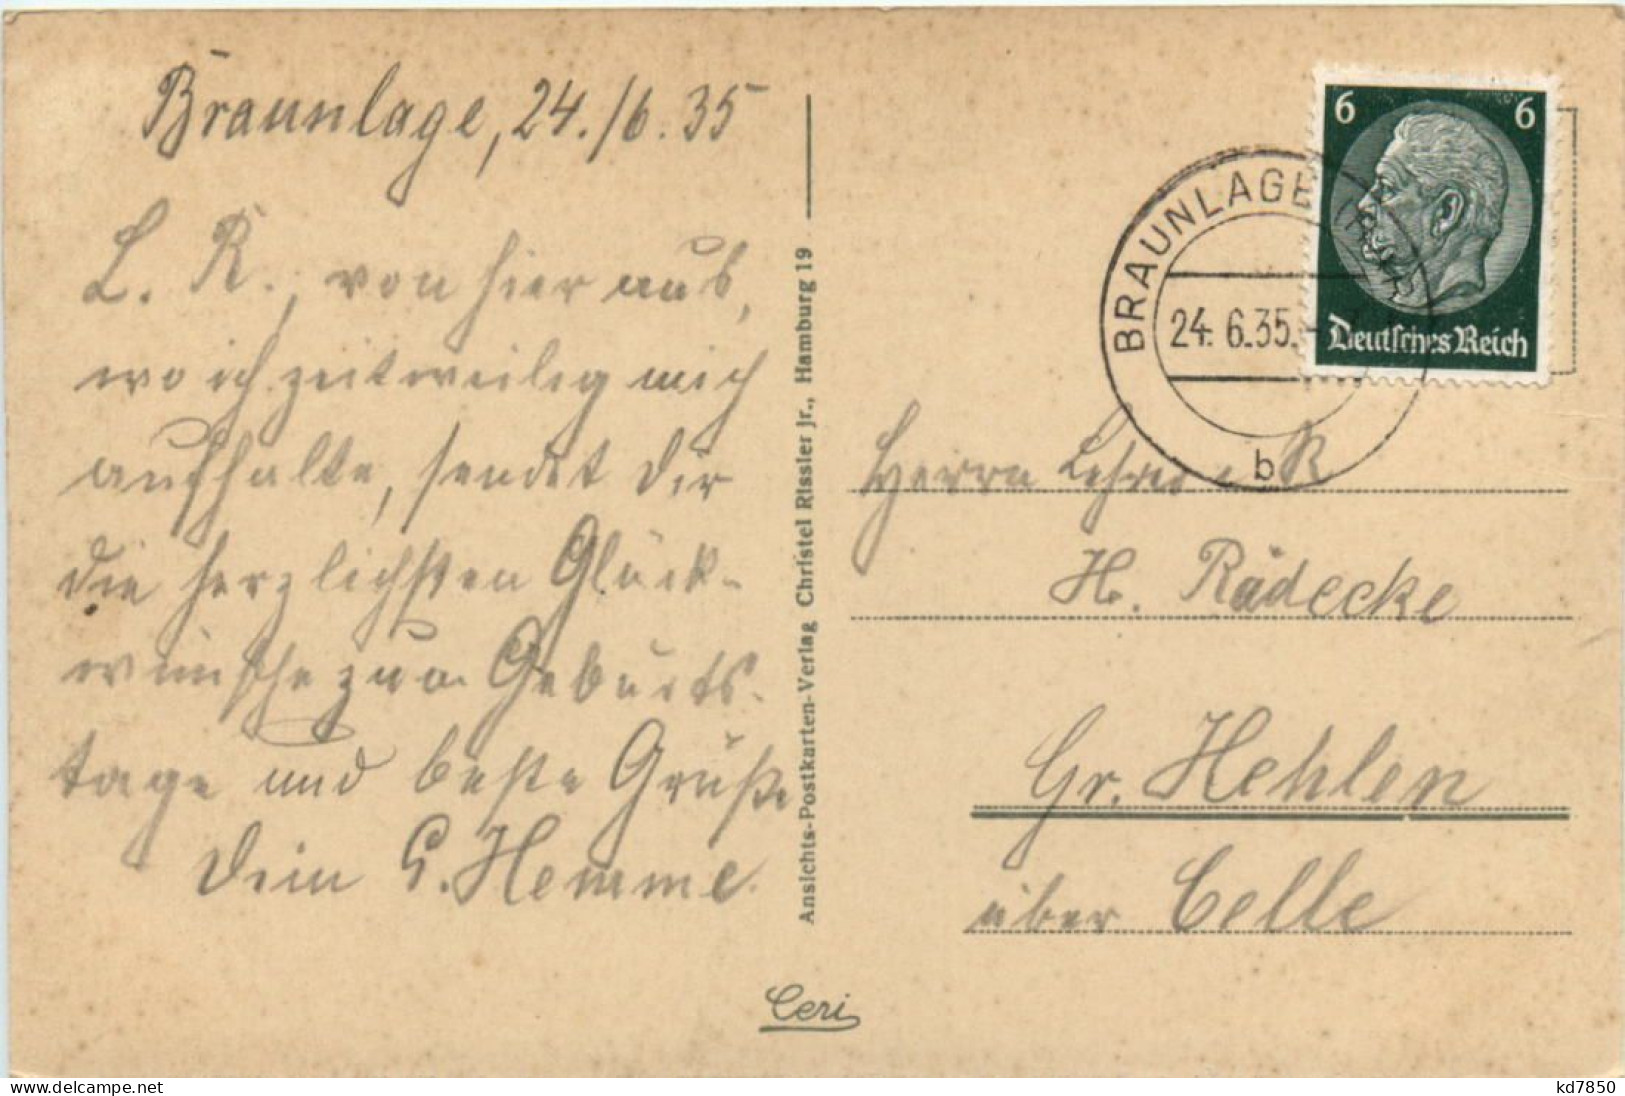 Braunlage, 24./6.35
L. R., von hier aus,
wo ich zeitweilig mich
aufhalte, sendet Dir
die herzlichsten Glück-
wünsche zum Geburts-
tage und beste Grüße
Dein G. Hemme.
Ansichts-Postkarten-Verlag Christel Rissler jr., Hamburg 19
Ceri
6 6
Deutsches Reich
BRAUNLAGE
24.6.35.
b
Herrn Lehrer i. R.
H. Rädecke
Gr. Hehlen
über Celle
www.delcampe.net
kd7850